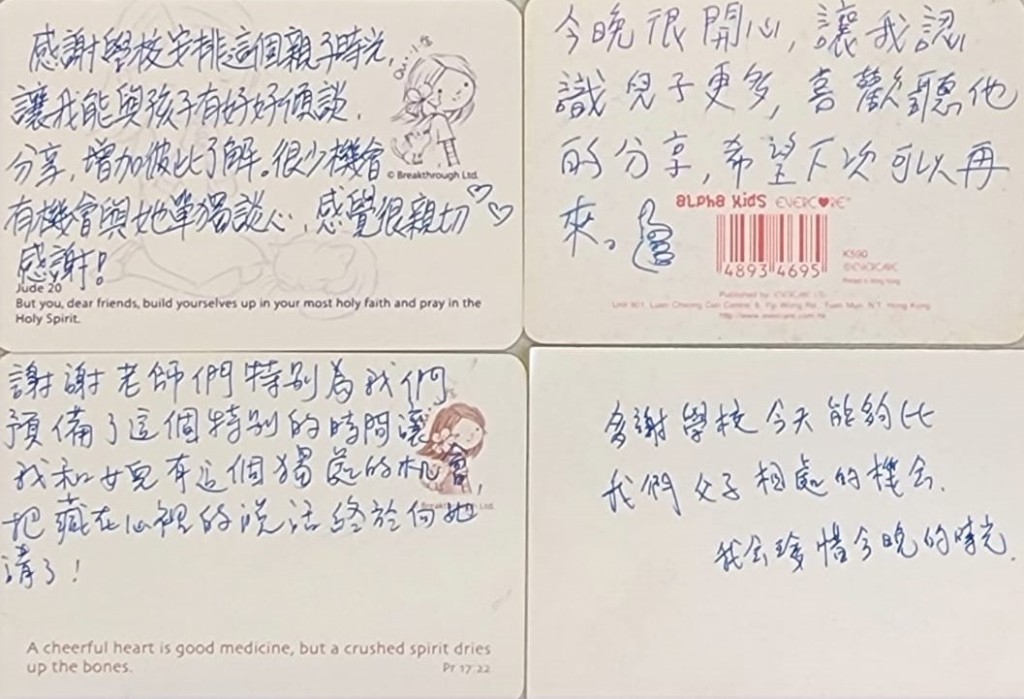 感謝學校安排這個親子時光,
讓我能與孩子有好好傾談,
分享,增加彼此了解。很少機會
有機會與她單獨談心,感覺很親切♡♡
感謝!
© Breakthrough Ltd.
Jude 20
But you, dear friends, build yourselves up in your most holy faith and pray in the
Holy Spirit.
今晚很開心,讓我認
識兒子更多,喜歡聽他
的分享,希望下次可以再
來。
alpha kids EVERCARE
4893 4695
K590
©EVERCARE
Printed in Hong Kong
Published by: EVERCARE
http://www.evercare.com.hk
謝謝老師們特別為我們
預備了這個特別的時間讓
我和女兒有這個獨處的机會,
把藏在心裡的说话终於向她
講了!
A cheerful heart is good medicine, but a crushed spirit dries
up the bones.
Pr 17:22
多謝學校今天能約比
我們父子相處的機会.
我会珍惜今晚的時光.